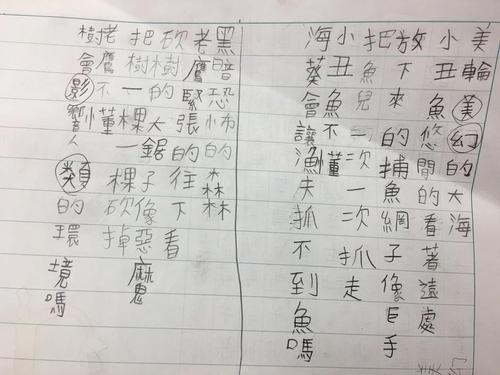 美輪美幻的大海
小丑魚悠閒的看著遠處
放下來的捕魚網子像巨手
把魚兒一次一次抓走
小丑魚不懂
海葵會讓漁夫抓不到魚嗎
黑暗恐怖的森林
老鷹緊張的往下看
砍樹的大鋸子像惡魔
把樹一棵一棵砍掉
老鷹不懂
樹會影響人類的環境嗎